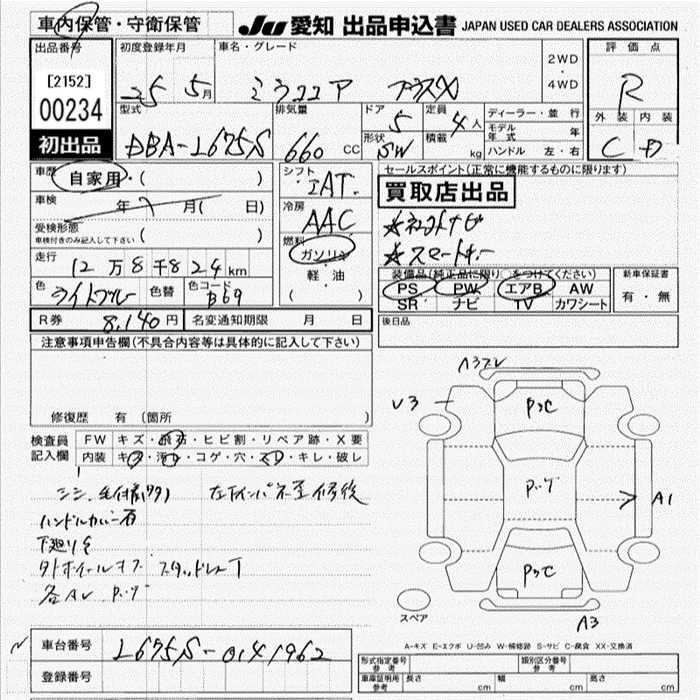 車内保管・守衛保管
JU 愛知 出品申込書 JAPAN USED CAR DEALERS ASSOCIATION
出品番号 初度登録年月 車名・グレード 2WD ・ 4WD 評価点
[2152]
00234
初出品
25 5月 ミラココア プラスX R
型式 排気量 ドア 定員 ディーラー・並行 外装 内装
DBA-L675S 660 CC 5 4人 モデル年式 年 C D
形状 SW 積載 kg ハンドル 左・右
車歴 自家用・( ) シフト IAT セールスポイント(正常に機能するものに限ります)
車検 年 月( 日) 冷房 AAC 買取店出品
受検形態 車検付きのみ記入して下さい ( ) 燃料 ガソリン
走行 12万8千824km 軽・油 ( )
★スマートキー
色 ライトブルー 色替 色コード B69
装備品(純正品に限り○をつけてください) 新車保証書
PS PW エアB AW 有・無
SR ナビ TV カワシート
R券 8,140円 名変通知期限 月 日 後日品
注意事項申告欄(不具合内容等は具体的に記入して下さい)
修復歴 有 (箇所 )
検査員記入欄 FW キズ・飛石・ヒビ割・リペア跡・X要
内装 キズ・汚れ・コゲ・穴・スレ・キレ・破レ
ハンドルカバー
下廻り
スタッドレス
V3
A1
A3
スペア
A-キズ E-エクボ U-凹み W-補修跡 S-サビ C-腐食 XX-交換済
車台番号 L675S-0141962
登録番号
形式指定番号 参考 類別区分番号 参考
車庫証明用 参考 長さ cm 幅 cm 高さ cm